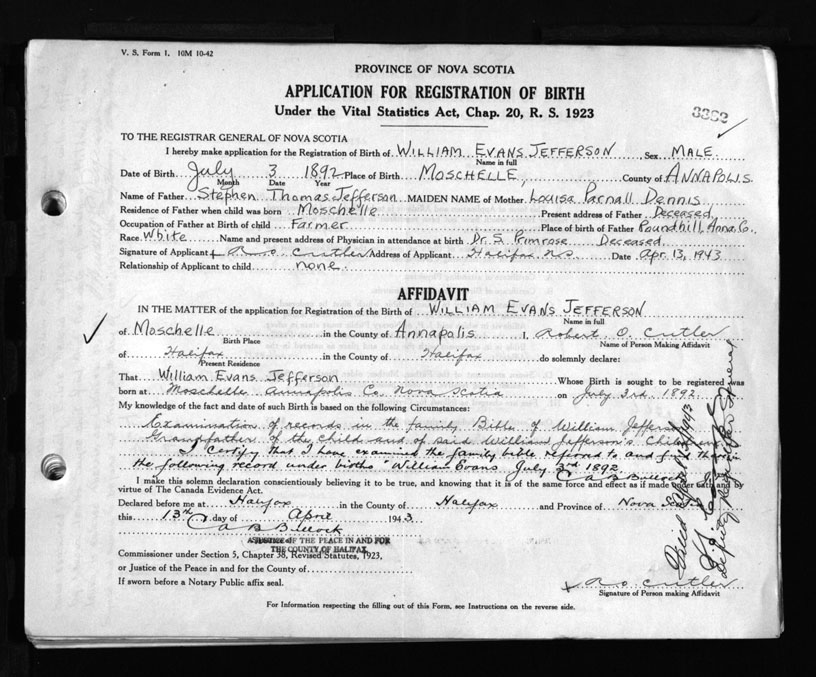 V. S. Form 1. 10M 10-42
PROVINCE OF NOVA SCOTIA
APPLICATION FOR REGISTRATION OF BIRTH
Under the Vital Statistics Act, Chap. 20, R. S. 1923
TO THE REGISTRAR GENERAL OF NOVA SCOTIA
I hereby make application for the Registration of Birth of WILLIAM EVANS JEFFERSON, Sex MALE.
Name in full
Date of Birth July 3 1892 Place of Birth MOSCHELLE, County of ANNAPOLIS
Month Date Year
Name of Father Stephen Thomas Jefferson MAIDEN NAME of Mother Louisa Parnall Dennis
Residence of Father when child was born Moschelle Present address of Father Deceased
Occupation of Father at Birth of child Farmer Place of birth of Father Roundhill, Anna. Co.
Race White Name and present address of Physician in attendance at birth Dr. S. Primrose Deceased
Signature of Applicant R. O. Cutler Address of Applicant Halifax N.S. Date Apr. 13, 1943
Relationship of Applicant to child none.
AFFIDAVIT
IN THE MATTER of the application for Registration of the Birth of WILLIAM EVANS JEFFERSON
Name in full
of Moschelle in the County of Annapolis I, Robert O. Cutler
Birth Place Name of Person Making Affidavit
of Halifax in the County of Halifax do solemnly declare:
Present Residence
That William Evans Jefferson Whose Birth is sought to be registered was
born at Moschelle Annapolis Co. Nova Scotia on July 3rd. 1892
My knowledge of the fact and date of such Birth is based on the following Circumstances:
Examination of records in the family Bible of William Jefferson
Grandfather of the child and of said William Jefferson's Children
I certify that I have examined the family bible referred to and find the
the following record under births "William Evans July 3rd 1892
A B Bullock
I make this solemn declaration conscientiously believing it to be true, and knowing that it is of the same force and effect as if made under oath and by
virtue of The Canada Evidence Act.
Declared before me at Halifax in the County of Halifax and Province of Nova Scotia
this 13th day of April 1943
A B Bullock
A JUSTICE OF THE PEACE IN AND FOR
THE COUNTY OF HALIFAX
Commissioner under Section 5, Chapter 38, Revised Statutes, 1923,
or Justice of the Peace in and for the County of
If sworn before a Notary Public affix seal.
R O Cutler
Signature of Person making Affidavit
For Information respecting the filling out of this Form, see Instructions on the reverse side.
Deputy Registrar General